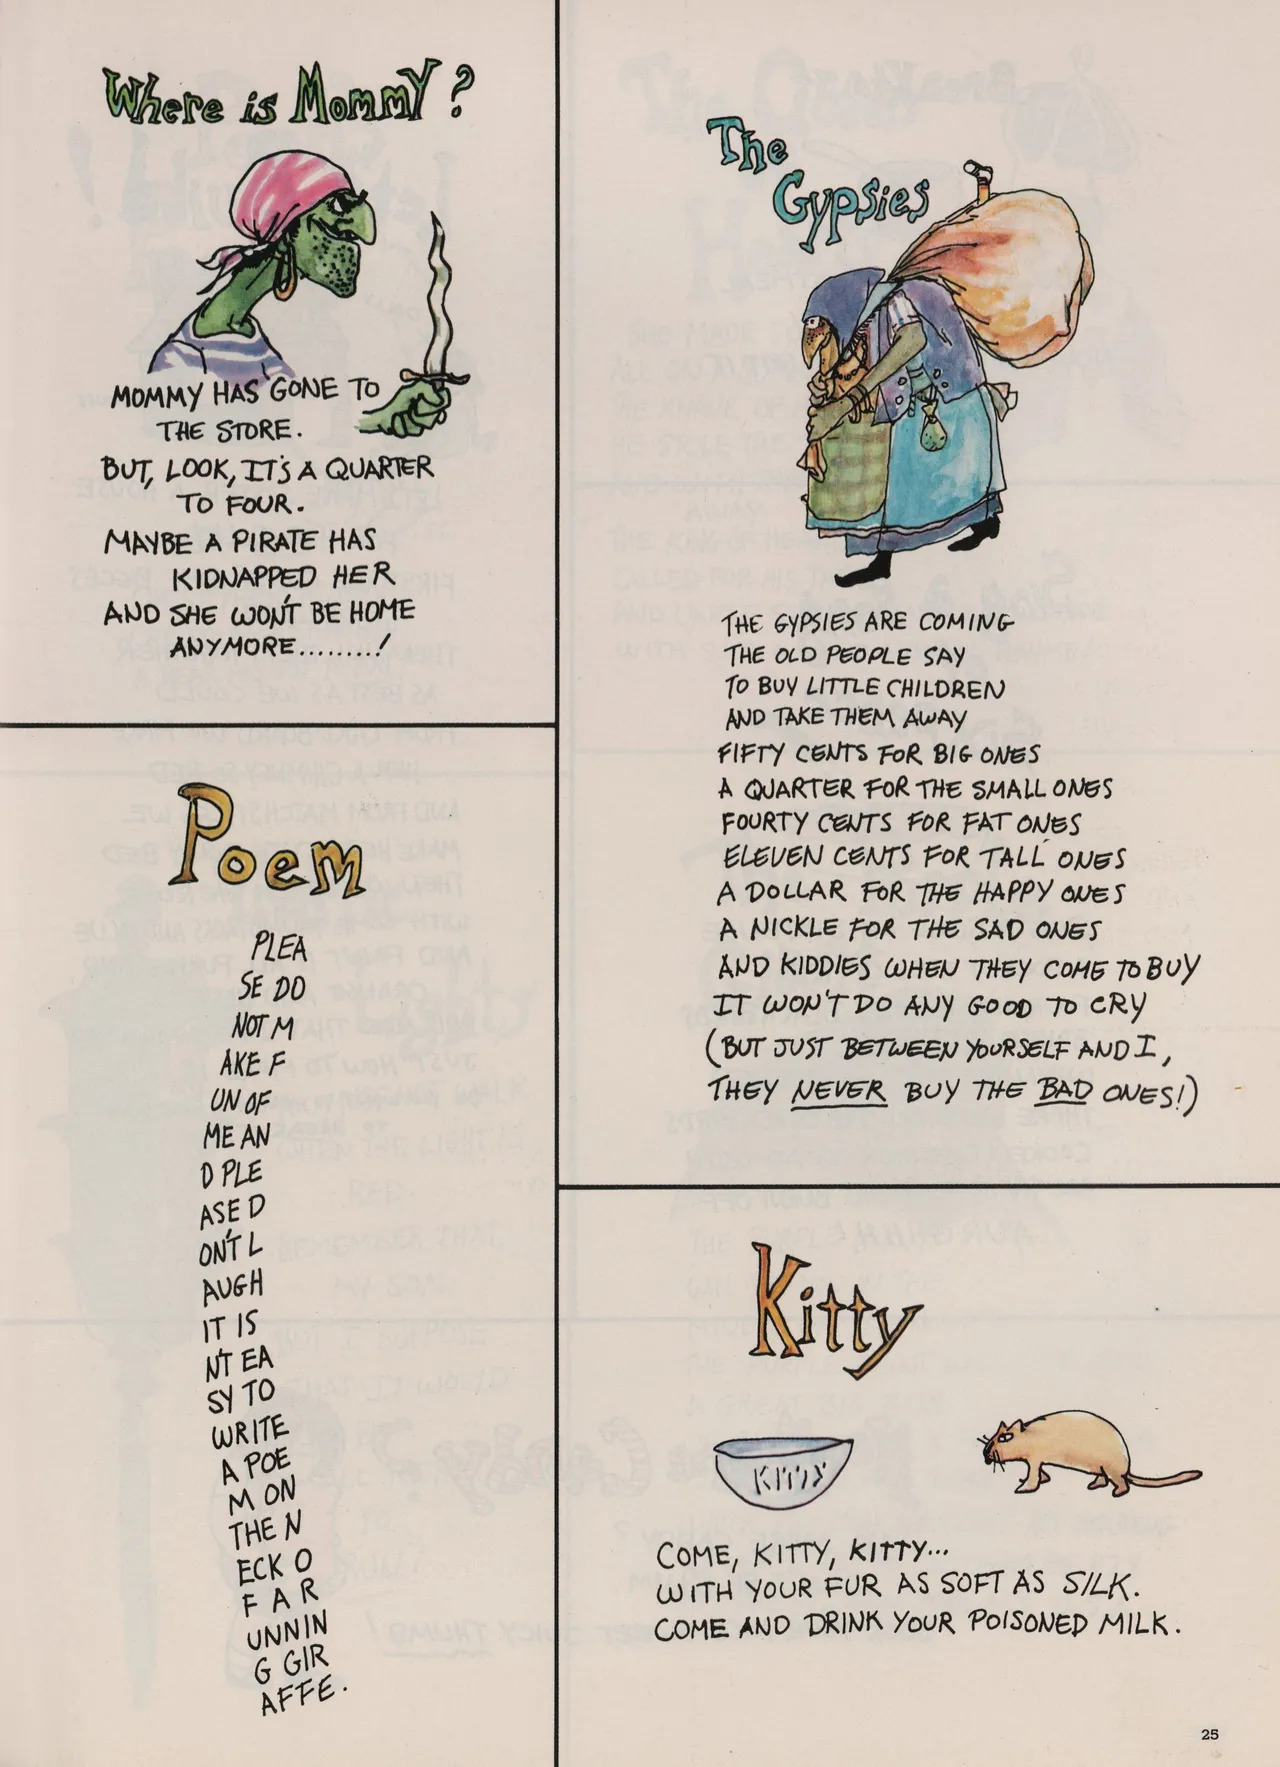 Where is Mommy?
MOMMY HAS GONE TO
THE STORE.
BUT, LOOK, IT'S A QUARTER
TO FOUR.
MAYBE A PIRATE HAS
KIDNAPPED HER
AND SHE WON'T BE HOME
ANYMORE........!
Poem
PLEA
SE DO
NOT M
AKE F
UN OF
ME AN
D PLE
ASE D
ON'T L
AUGH
IT IS
N'T EA
SY TO
WRITE
A POE
M ON
THE N
ECK O
F A R
UNNIN
G GIR
AFFE.
The
Gypsies
THE GYPSIES ARE COMING
THE OLD PEOPLE SAY
TO BUY LITTLE CHILDREN
AND TAKE THEM AWAY
FIFTY CENTS FOR BIG ONES
A QUARTER FOR THE SMALL ONES
FOURTY CENTS FOR FAT ONES
ELEVEN CENTS FOR TALL ONES
A DOLLAR FOR THE HAPPY ONES
A NICKLE FOR THE SAD ONES
AND KIDDIES WHEN THEY COME TO BUY
IT WON'T DO ANY GOOD TO CRY
(BUT JUST BETWEEN YOURSELF AND I,
THEY NEVER BUY THE BAD ONES!)
Kitty
KITTY
COME, KITTY, KITTY...
WITH YOUR FUR AS SOFT AS SILK.
COME AND DRINK YOUR POISONED MILK.
25